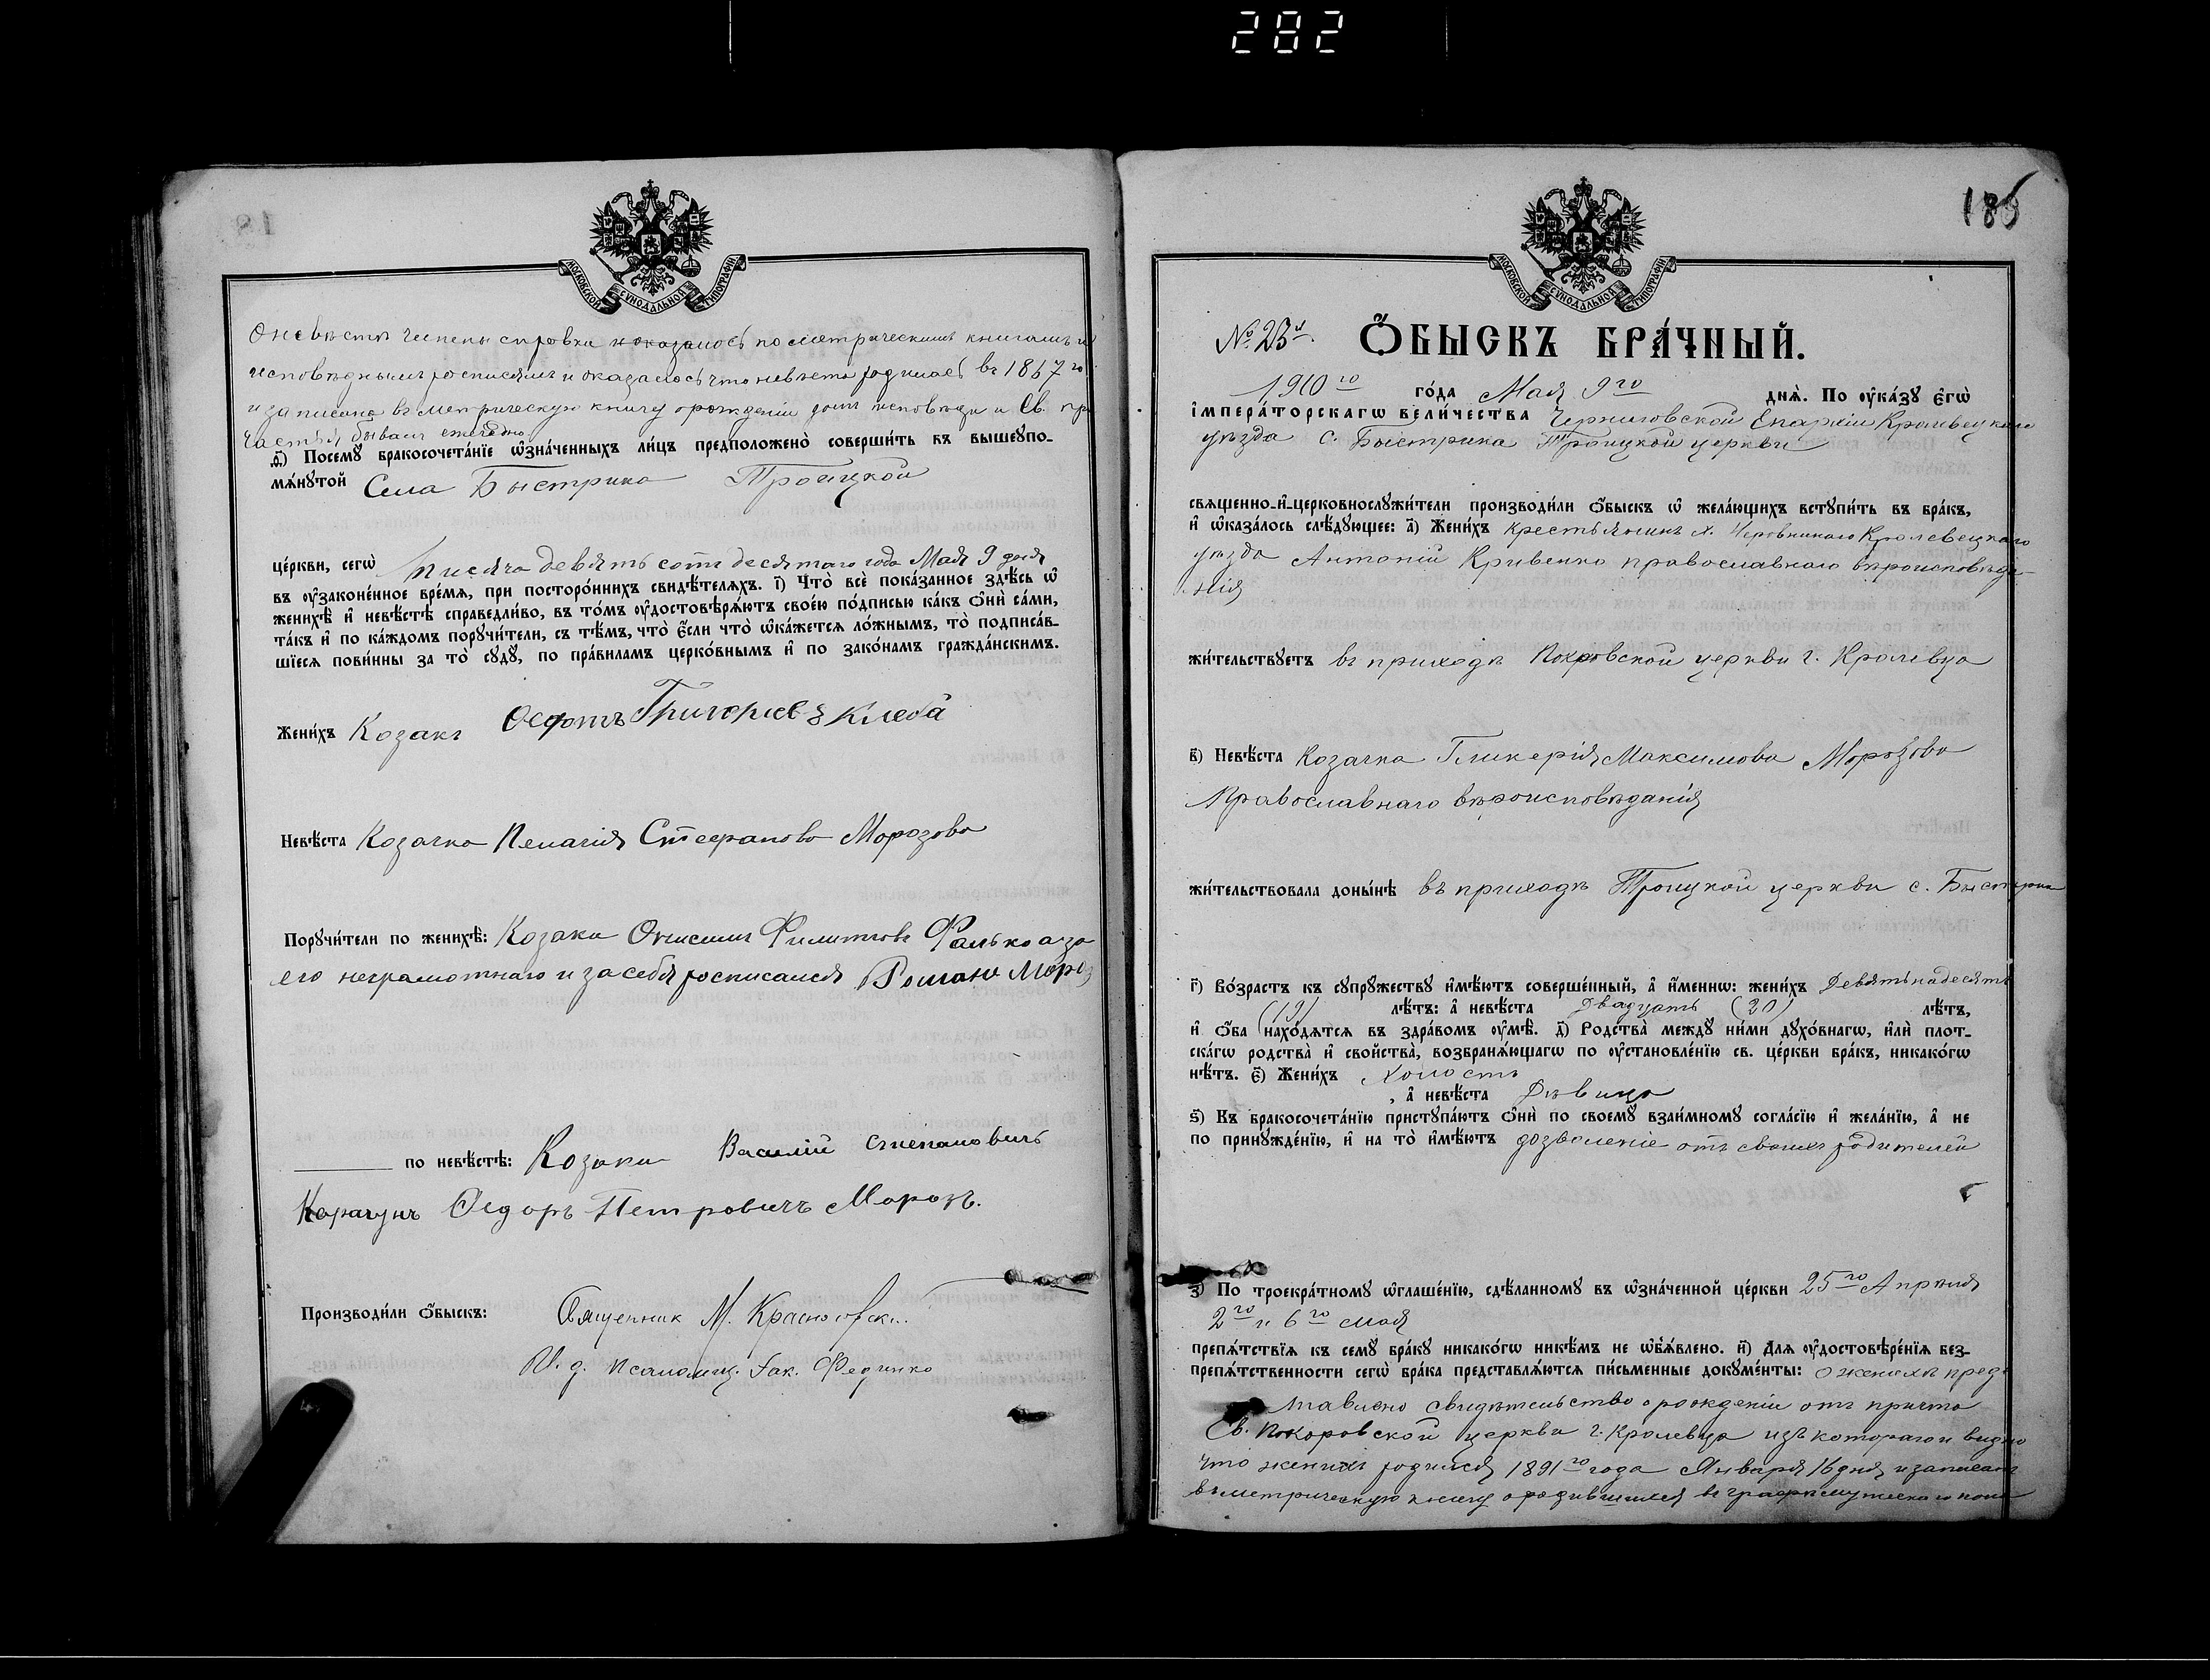 282
МОСКОВСКОЙ СѴНОДАЛЬНОЙ ТИПОГРАФІИ
О невѣстѣ чинены справки по метрическимъ книгамъ и
исповѣднымъ росписямъ и оказалось что невѣста родилась въ 1867 го
и записана въ метрическую книгу о рожденіи долгъ исповѣди и Св. при
частія бываетъ ежегодно.
д҃) Посемꙋ̀ бракосочета́нїе ѡ҆зна́ченныхъ ли́цъ предположено̀ соверши́ть въ вышеꙋпо-
мѧ́нꙋтой Села Быстрика Троицкой
це́ркви, сегѡ̀ тысяча девять сотъ десятаго года Мая 9 дня
въ ᲂу҆законе́нное вре́мѧ, при посторо́ннихъ свидѣ́телѧхъ. і҃) Что̀ всѐ пока́занное здѣ́сь ѡ҆
женихѣ̀ и҆ невѣ́стѣ справедли́во, въ то́мъ ᲂу҆достовѣрѧ́ютъ свое́ю по́дписью ка́къ ѻ҆нѝ са́ми,
та́къ и҆ по ка́ждомъ порꙋчи́тели, съ тѣ́мъ, что̀ є҆́сли что̀ ѡ҆ка́жетсѧ ло́жнымъ, то̀ подписа́в-
шїесѧ пови́нны за то̀ сꙋдꙋ̀, по пра́виламъ церко́внымъ и҆ по зако́намъ гражда́нскимъ.
Жени́хъ Козакъ Ѳеодотъ Григоріевъ Клеба
Невѣ́ста Козачка Пелагія Стефанова Морозова
Порꙋчи́тели по женихѣ̀: Козаки Онисимъ Филиповъ Фалько а за
его неграмотнаго и за себя росписался Романъ Мороз
по невѣ́стѣ: Козаки Василій Степановичъ
Карачунъ Ѳедоръ Петровичъ Морозъ.
Производи́ли ѻ҆́быскъ: Священник М. Красновск..
И. д. псаломщ. Іак. Федченко
185
МОСКОВСКОЙ СѴНОДАЛЬНОЙ ТИПОГРАФІИ
№ 23й. Ѻ҆́БЫСКЪ БРА́ЧНЫЙ.
1910го го́да Мая 9го днѧ̀. По ᲂу҆ка́зꙋ є҆гѡ̀
і҆мпера́торскагѡ вели́чества Черниговской Епархіи Кролевецкаго
уѣзда с. Быстрика Троицкой церкви
свѧщенно-и҆-церковнослꙋжи́тели производи́ли ѻ҆́быскъ ѡ҆ жела́ющихъ встꙋпи́ть въ бра́къ,
и҆ ѡ҆каза́лось слѣ́дꙋющее: а҃) Жени́хъ крестьянинъ х. Кролевецкаго
уѣзда Антоній Кривенко православнаго вѣроисповѣда-
нія
жи́тельствꙋетъ въ приходѣ Покровской церкви г. Кролевца
в҃) Невѣ́ста Козачка Гликерія Максимова Морозова
Православнаго вѣроисповѣданія
жи́тельствовала доны́нѣ въ приходѣ Троицкой церкви с. Быстрика
г҃) Во́зрастъ къ сꙋпрꙋ́жествꙋ и҆мѣ́ютъ соверше́нный, а҆ и҆́меннѡ: жени́хъ Девятьнадесять
(19) лѣ́тъ: а҆ невѣ́ста Двадцать (20) лѣ́тъ,
и҆ ѻ҆́ба нахо́дѧтсѧ въ здра́вомъ ᲂу҆мѣ̀. д҃) Родства̀ междꙋ̀ ни́ми дꙋхо́внагѡ, и҆лѝ плот-
ска́гѡ родства̀ и҆ сво́йства̀, возбранѧ́ющагѡ по ᲂу҆становле́нїю св. це́ркви бра́къ, никако́гѡ
нѣ́тъ. є҃) Жени́хъ холостъ
, а҆ невѣ́ста Дѣвица
ѕ҃) Къ бракосочета́нїю пристꙋпа́ютъ ѻ҆нѝ по своемꙋ̀ взаи́мномꙋ согла́сїю и҆ жела́нїю, а҆ не
по принꙋжде́нїю, и҆ на то̀ и҆мѣ́ютъ дозволеніе отъ своихъ родителей
з҃) По троекра́тномꙋ ѡ҆глаше́нїю, сдѣ́ланномꙋ въ ѡ҆зна́ченной це́ркви 25го Апрѣля
2го и 6го мая
препѧ́тствїѧ къ семꙋ̀ бра́кꙋ никако́гѡ никѣ́мъ не ѡ҆б̾ѧ́влено. и҃) Длѧ ᲂу҆достовѣре́нїѧ без-
препѧ́тственности сегѡ̀ бра́ка представлѧ́ютсѧ пи́сьменные докꙋме́нты: о женихѣ пред-
ставлено свидѣтельство о рожденіи отъ причта
Св. Покоровской церкви г. Кролевца изъ котораго и видно
что женихъ родился 1891го года Января 16 дня и записанъ
въ метрическую книгу о родившихся въ графѣ мужеска го пола